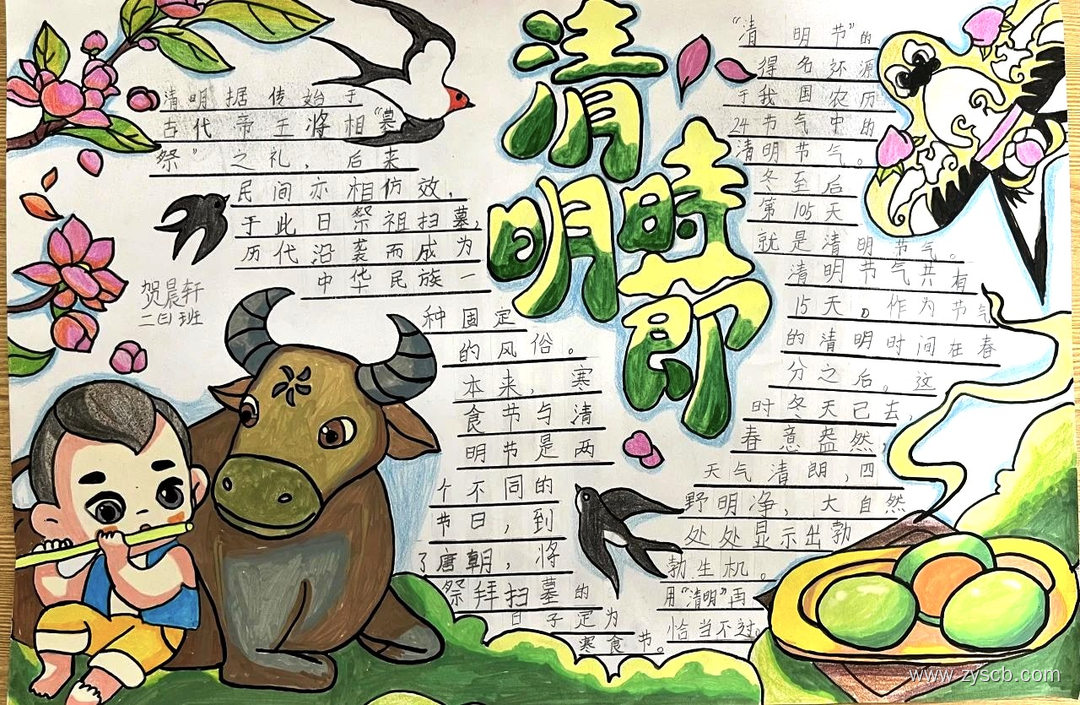 清明时节
清明据传始于
古代帝王将相“墓
祭”之礼，后来
民间亦相仿效，
于此日祭祖扫墓，
历代沿袭而成为
中华民族一
种固定
的风俗。
本来，寒
食节与清
明节是两
个不同的
节日，到
了唐朝，将
祭拜扫墓的
日子定为
寒食节。
“清明节”的
得名还源
于我国农历
24节气中的
清明节气。
冬至后
第105天
就是清明节气。
清明节气共有
15天。作为节气
的清明时间在春
分之后。这
时冬天已去，
春意盎然，
天气清朗，四
野明净，大自然
处处显示出勃
勃生机。
用“清明”再
恰当不过。
贺晨轩
二(3)班
www.zyscb.com